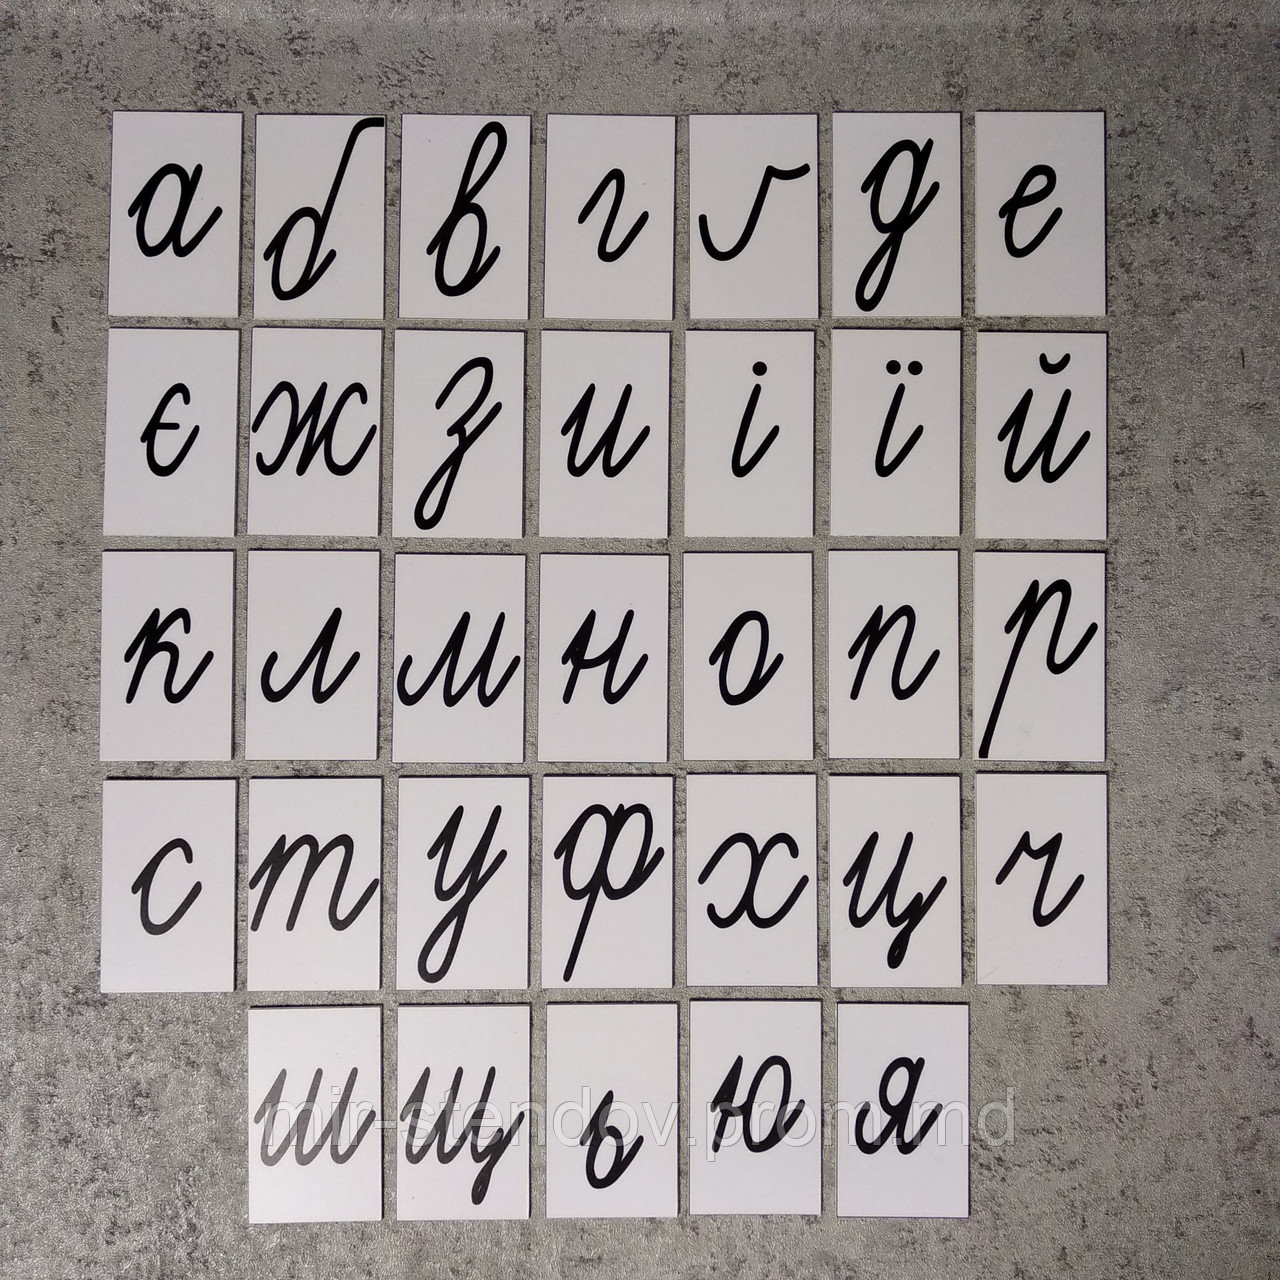 а б в г ґ д е
є ж з и і ї й
к л м н о п р
с т у ф х ц ч
ш щ ь ю я
mir-stendov.prom.md